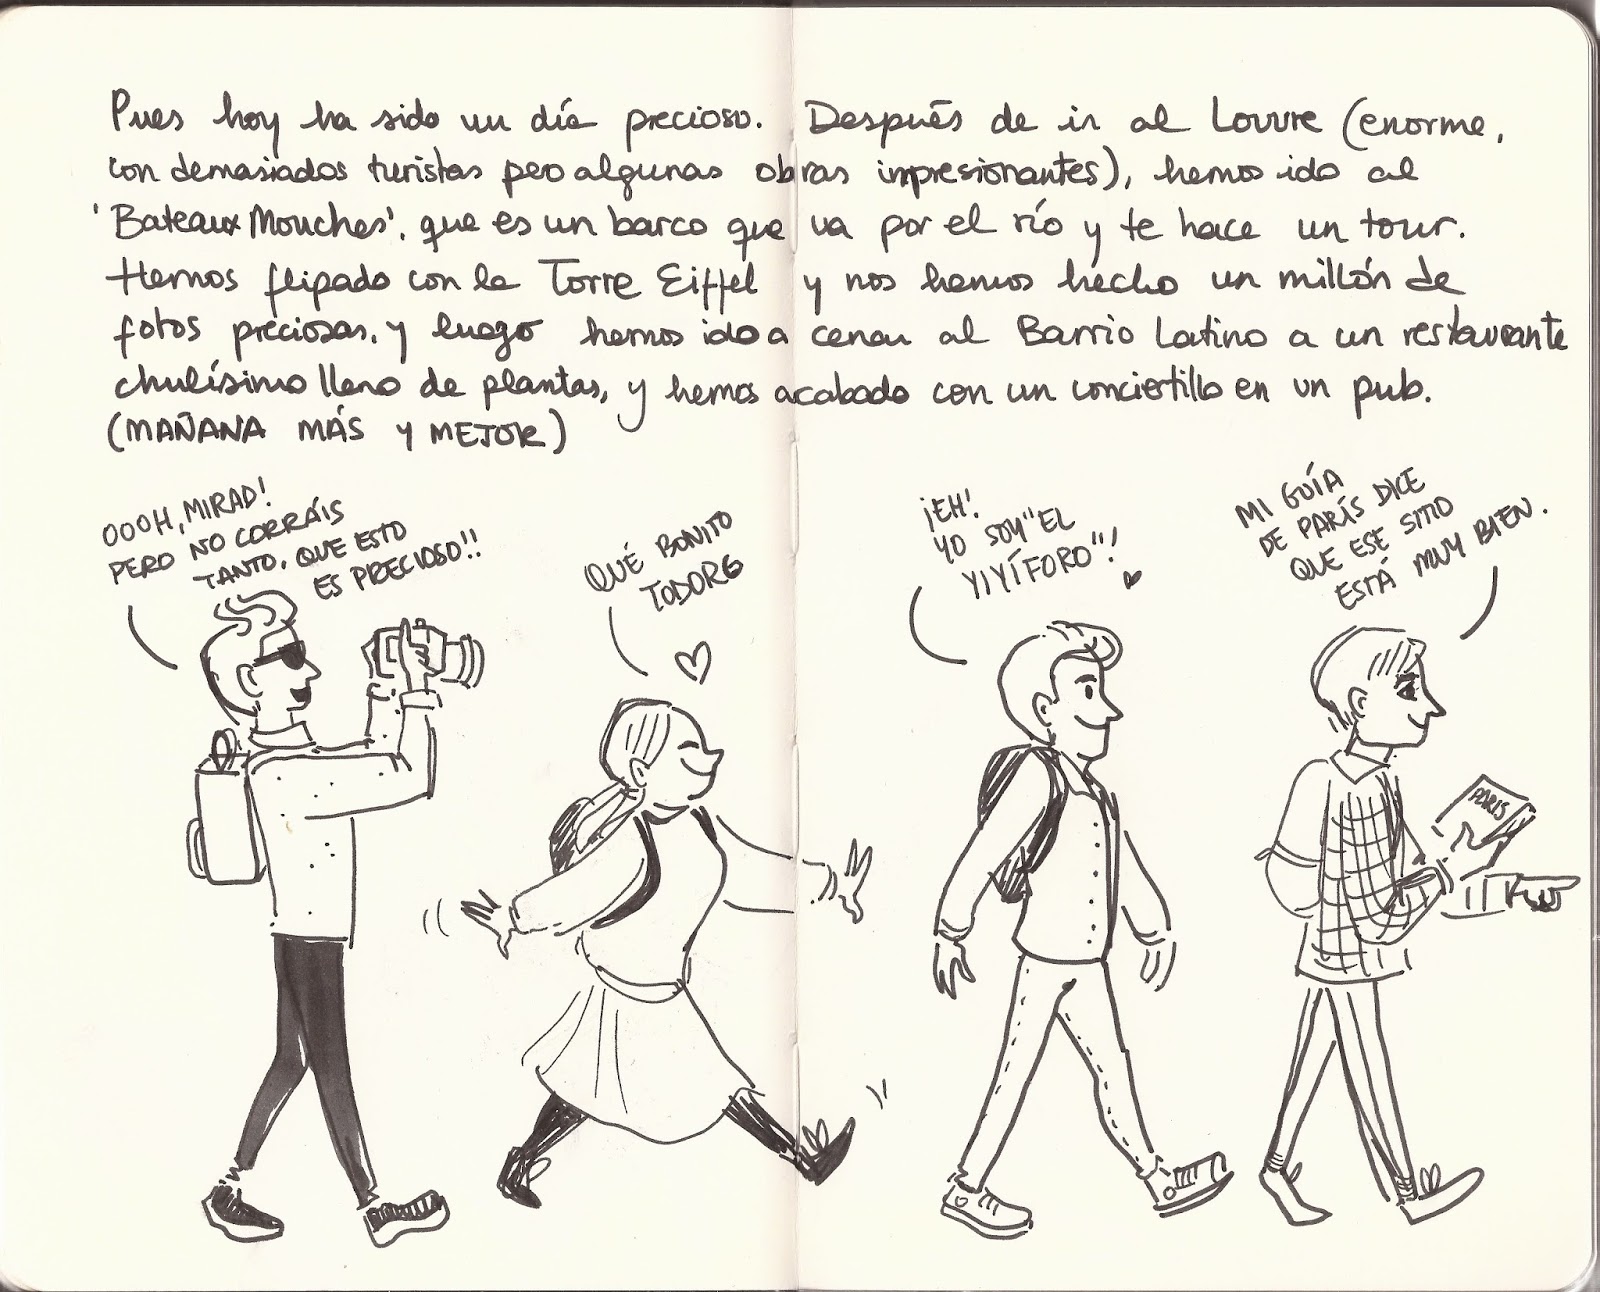 Pues hoy ha sido un día precioso. Después de ir al Louvre (enorme,
con demasiados turistas pero algunas obras impresionantes), hemos ido al
'Bateaux Mouches', que es un barco que va por el río y te hace un tour.
Hemos flipado con la Torre Eiffel y nos hemos hecho un millón de
fotos preciosas, y luego hemos ido a cenar al Barrio Latino a un restaurante
chulísimo lleno de plantas, y hemos acabado con un conciertillo en un pub.
(MAÑANA MÁS Y MEJOR)
OOOH, MIRAD!
PERO NO CORRÁIS
TANTO, QUE ESTO
ES PRECIOSO!!
QUÉ BONITO
TODORG
¡EH!
YO SOY "EL
YIYÍFORO"!
MI GUÍA
DE PARÍS DICE
QUE ESE SITIO
ESTÁ MUY BIEN.
PARIS